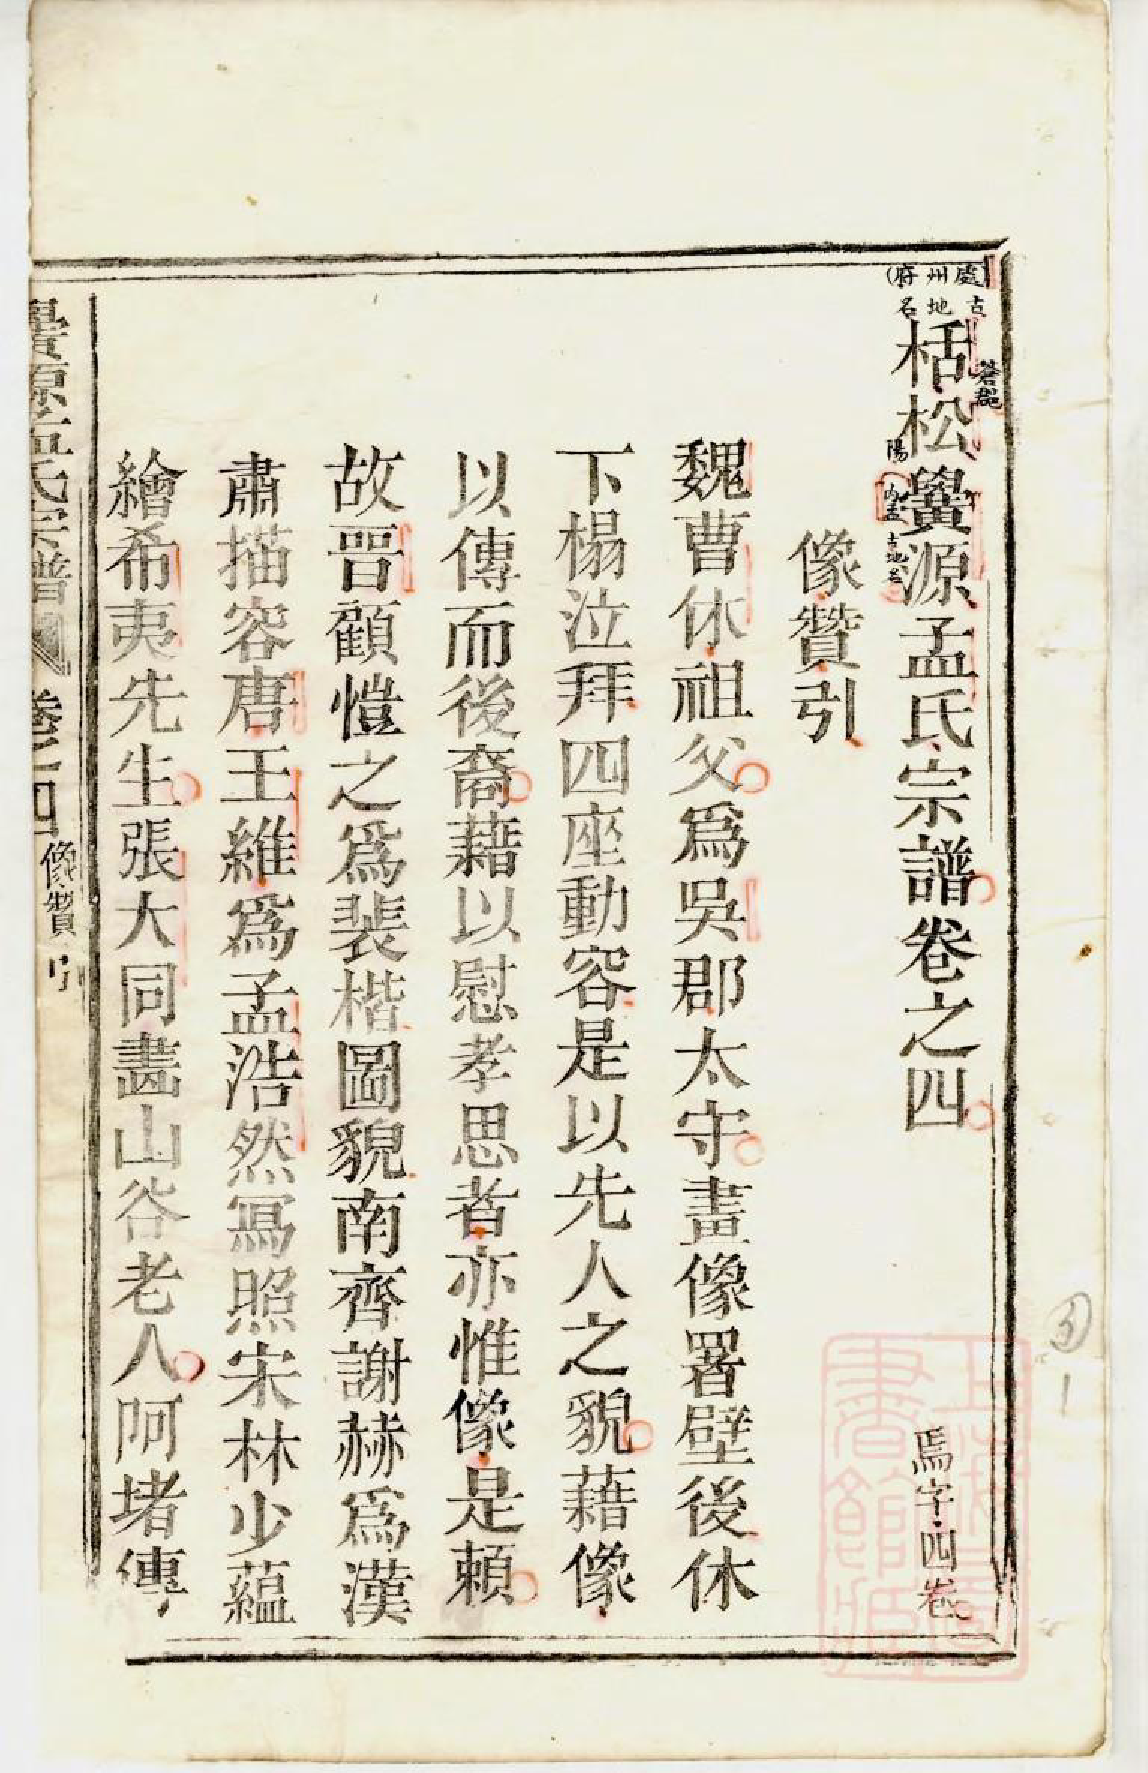 處州府
古地名
栝松黌源孟氏宗譜卷之四
蒼郡
陽
古地名
像贊引
魏曹休祖父爲吳郡太守畫像署壁後休
下榻泣拜四座動容是以先人之貌藉像
以傳而後裔藉以慰孝思者亦惟像是賴
故晉顧愷之爲裴楷圖貌南齊謝赫爲漢
肅描容唐王維爲孟浩然寫照宋林少蘊
繪希夷先生張大同畫山谷老人阿堵傳
焉字四卷
黌源孟氏宗譜
卷之四
像贊引
上海圖書館藏